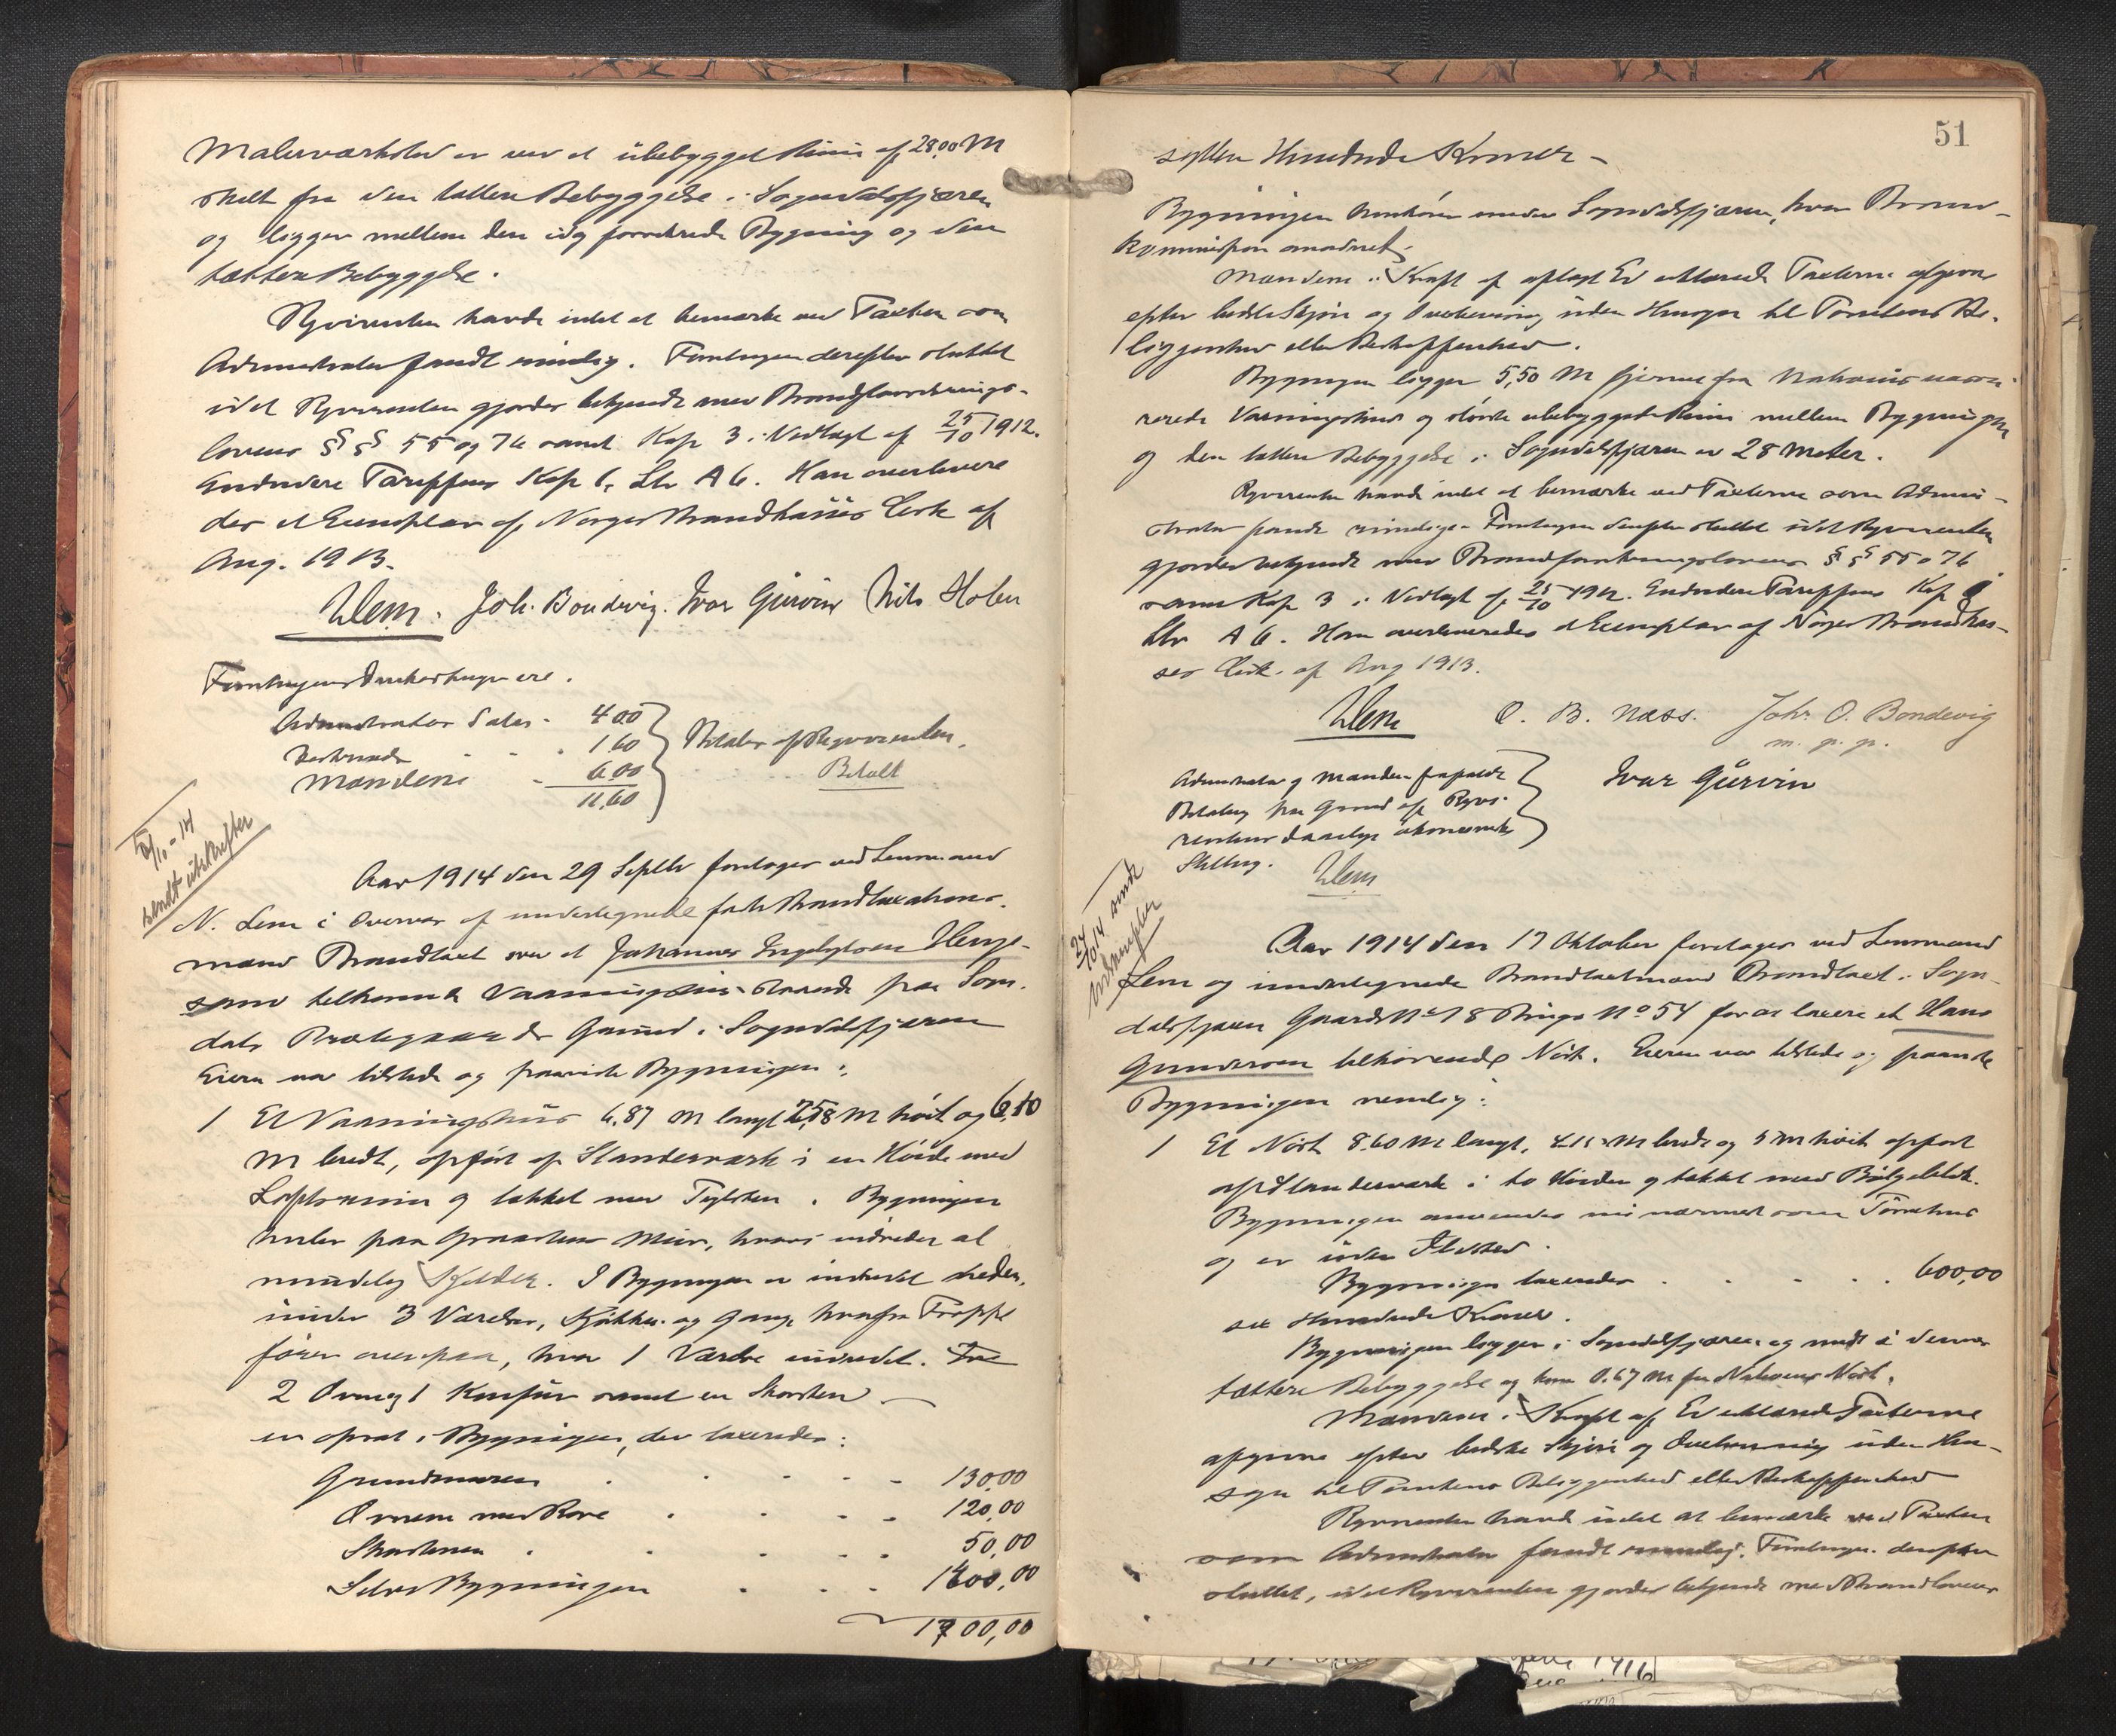 Malerværksted er ved et ubebygget Rum af 28,00 M
skilt fra den tættere Bebyggelse i Sogndalsfjæren
og ligger mellem den idag forretnede Bygning og den
tættere Bebyggelse.
Rekvirenten havde intet at bemærke ved Taxten som
Administrator fandt rimelig. Forretningen derefter sluttet
idet Rekvirenten gjordes bekjendt med Brandforsikrings-
lovens §§ 55 og 76 samt Kap 3 i Vedtægt af 25/10 1912.
Endvidere Tariffens Kap 1, Ltr A 6. Han overlevere
des et Exemplar af Norges Brandkasses Cirk af
Aug. 1913.
NLem. Joh. Bondevig. Ivar Gurvin Nils Hølen
Forretningens Omkostninger ere.
Administrator Salær - 4 00
1,60
Mændene - 6,00
11,60
Betales af Rekvirenten.
Betalt
5/10 - 14
sendt utskrifter
Aar 1914 den 29 Septbr foretoges ved Lensmand
N. Lem i Overvær af undertegnede faste Brandtaxations-
mænd Brandtaxt over et Johannes Ingebrigtsen Henje-
sand tilhørende Vaaningshus staaende paa Sogn-
dals Prestegaards Grund i Sogndalsfjæren
Eieren var tilstede og paaviste Bygningen:
1 Et Vaaningshus 6,87 M langt M høit og 6,10
M bredt, opført af Standerværk i en Høide med
Loftsrum og tækket med Teglsten. Bygningen
hviler paa Graastens Mur, hvori indredet al
mindelig Kjelder. I Bygningen er indredet neden-
under 3 Værelser, Kjøkken og Gang hvorfra Trappe
fører ovenpaa, hvor 1 Værelse indredet.
2 Ovne og 1 Komfur samt en Skorsten
er opsat i Bygningen, der taxeredes:
Grundmuren - 130,00
Ovnene med Rør - 120,00
Skorstenen - 50,00
Selve Bygningen - 1400,00
1700,00
51
sytten Hundrede Kroner -
Bygningen henhører under Sogndalsfjæren, hvor Brand-
kommission anordnet.
Mændene i Kraft af aflagt Ed erklærede Taxterne afgivne
efter bedste Skjøn og Overbevisning uden Hensyn til Tomtens Be-
liggenhed eller Beskaffenhed.
Bygningen ligger 5,50 M fjernet fra Naboens
Vaaningshus og største ubebyggede Rum mellem Bygningen
og den tættere Bebyggelse i Sogndalsfjæren er 28 Meter.
Rekvirenten havde intet at bemærke ved Taxterne som Admini-
strator fandt rimelige. Forretningen derefter sluttet idet Rekvirenten
gjordes bekjendt med Brandforsikringslovens §§ 55 o 76
samt Kap 3 i Vedtægt af 25/10 1912. Endvidere Tariffens Kap
Ltr A 6. Ham overleveredes et Exemplar af Norges Brandkas-
ses Cirk. af Aug 1913.
NLem O. B. Næss. Joh. O. Bondevig
m. p. p.
Ivar Gurvin
Administrator og Mændene frafaldt
Betaling paa Grund af Rekvi-
rentens daarlige økonomiske
Stilling.
NLem
24/10 14 sendt
Udskrifter
Aar 1914 den 17 Oktober foretoges ved Lensmand
Lem og undertegnede Brandtaxtmænd Brandtaxt i Sogn-
dalsfjæren Gaards No 18 Brugs No 54 for at taxere et Hans
Gundersen tilhørende Nøst. Eieren var tilstede og paaviste
Bygningen nemlig:
1 Et Nøst 8,60 M langt, M bredt og 5 M høit opført
af Standerværk i to Høider og tækket med Bølgeblik.
Bygningen anvendes nu nærmest som Tørrehus
og er uden Ildsted.
Bygningen taxeredes - 600,00
sex Hundrede Kroner.
Bygningen ligger i Sogndalsfjæren og midt i dennes
tættere Bebyggelse og kun 0.67 M fra Naboens Nøst.
Mændene i Kraft af Ed erklærede Taxterne
afgivne efter bedste Skjøn og Overbevisning uden Hen-
syn til Tomtens Beliggenhed eller Beskaffenhed
Rekvirenten havde intet at bemærke ved Taxten
som Administrator fandt rimelig. Forretningen derefter
sluttet, idet Rekvirenten gjordes bekjendt med Brandlovens